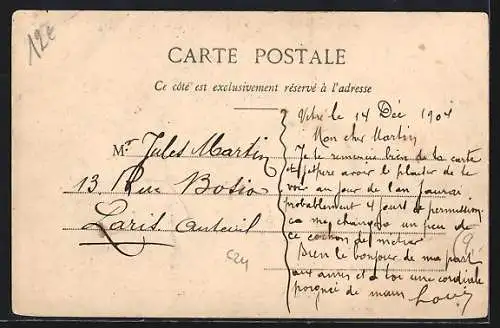 12e
CARTE POSTALE
Ce côté est exclusivement réservé à l'adresse
Mr Jules Martin
13 Rue Bosio
Paris Auteuil
le 14 Déc 1904
Mon cher Martin
Je te remercie bien de la carte
et j'espère avoir le plaisir de te
voir au jour de l'an j'aurai
probablement 4 jours de permission
ça me changera un peu de
ce cochon de métier
Bien le bonjour de ma part
aux amis et à toi une cordiale
poignée de main Louis